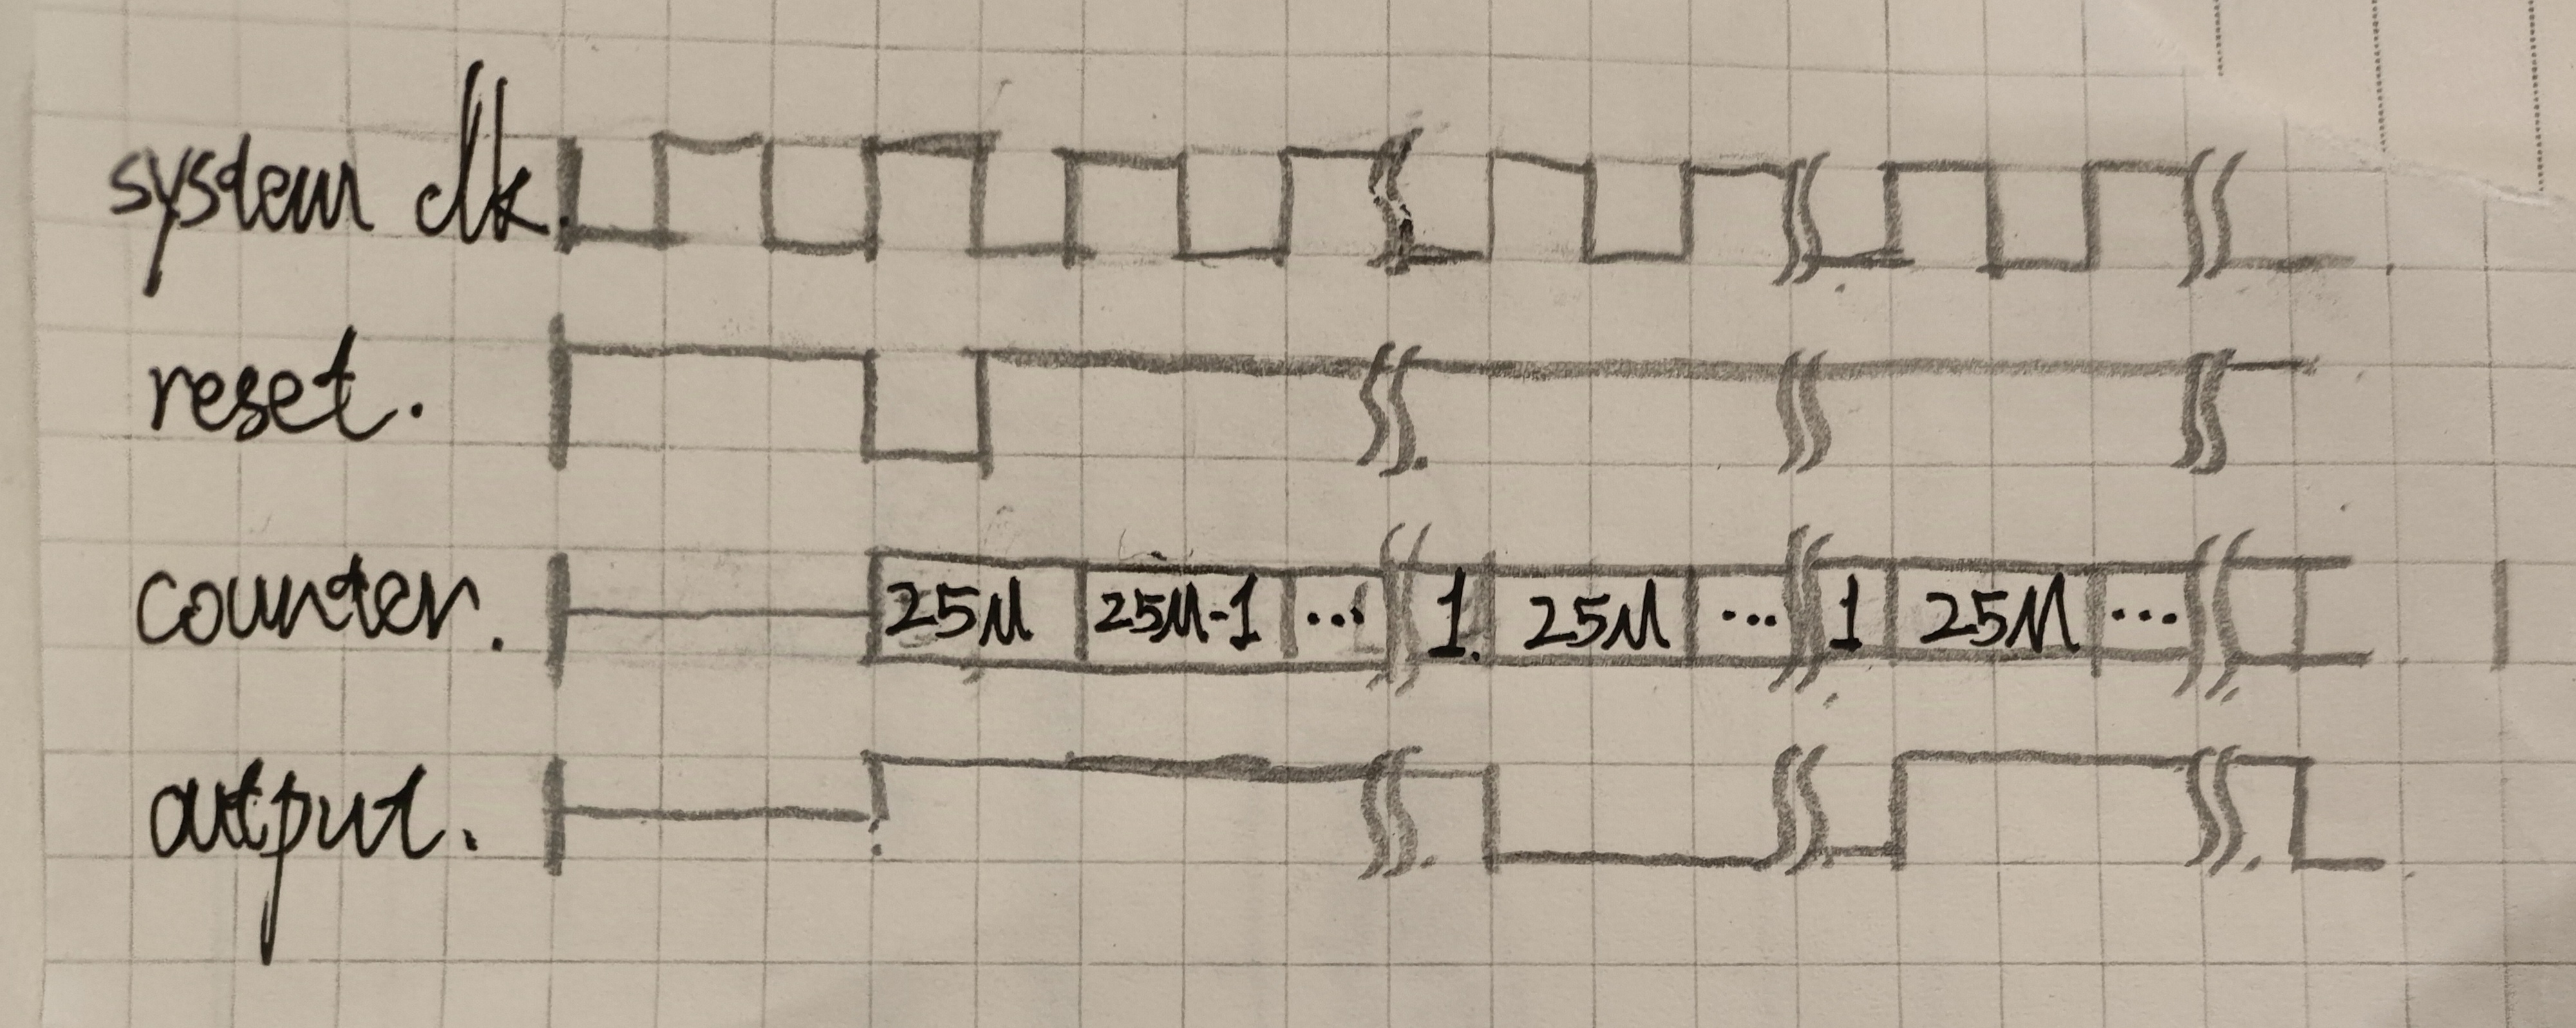 system clk.
reset.
counter. 25M 25M-1 ... 1. 25M ... 1 25M ...
output.